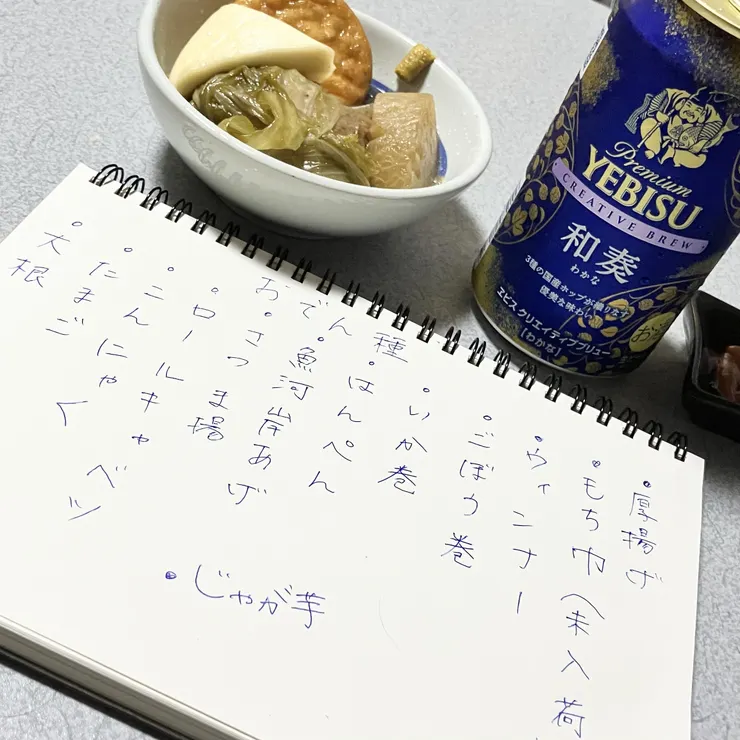 Premium
YEBISU
CREATIVE BREW
和奏
わかな
3種の国産ホップが織りなす
優美な味わい
ヱビス クリエイティブブリュー
[わかな]
お酒
おでん種
・厚揚げ
・もち巾(未入荷
・ウィンナー
・ごぼう巻
・いか巻
・はんぺん
・魚河岸あげ
・さつま揚
・ロールキャベツ
・こんにゃく
・たまご
・大根
・じゃが芋